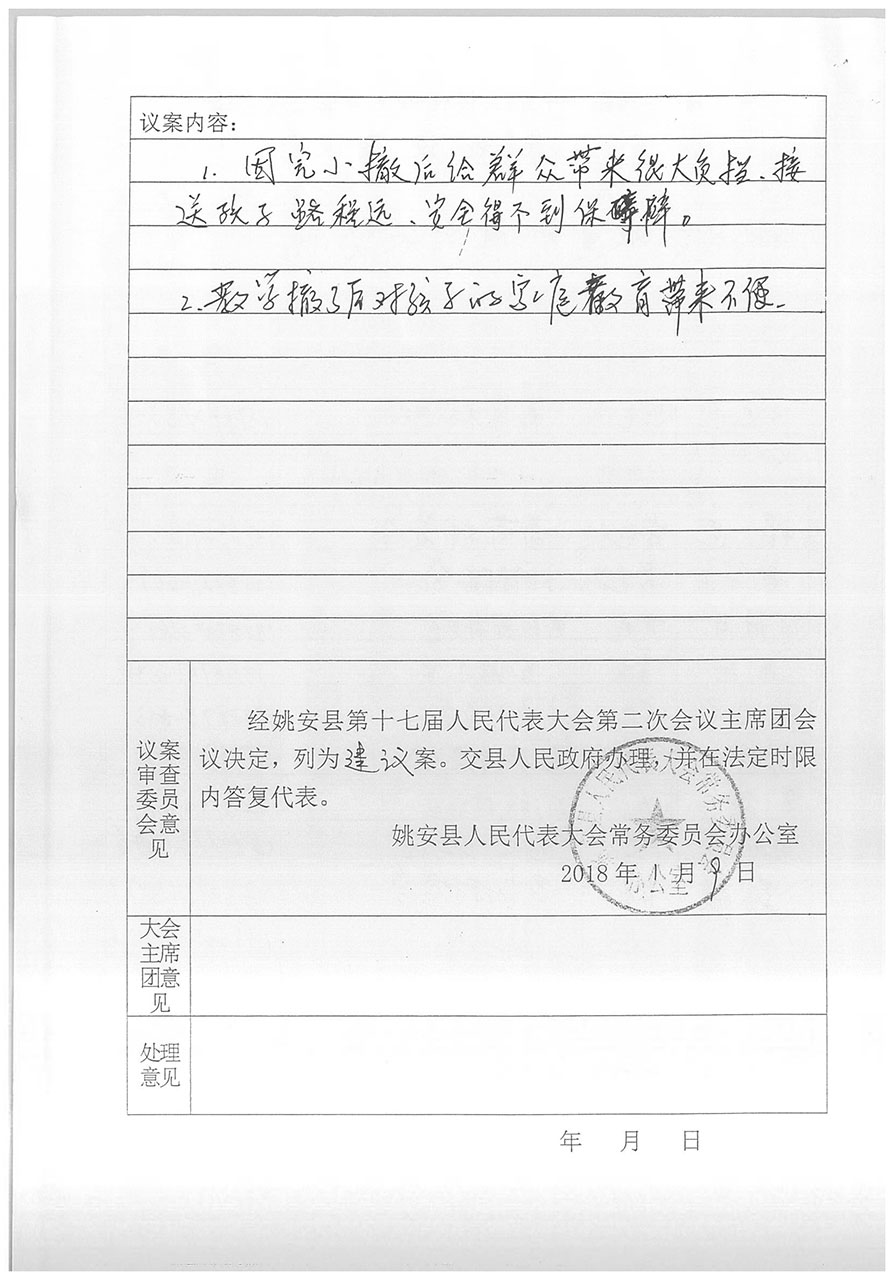 议案内容：
1. 因完小撤后给群众带来很大负担、接
送孩子路程远、安全得不到保障。
2. 教学撤了后对孩子的家庭教育带来不便.
议案
审查
委员
会意
见
经姚安县第十七届人民代表大会第二次会议主席团会
议决定，列为建议案。交县人民政府办理，并在法定时限
内答复代表。
姚安县人民代表大会常务委员会办公室
2018年1月9日
县人民代表大会常务委员会
办公室
大会
主席
团意
见
处理
意见
年 月 日